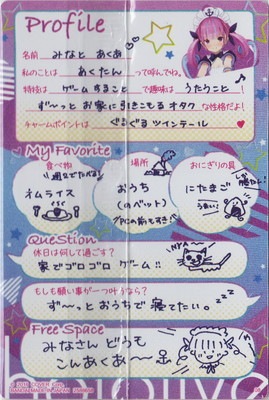 Profile
名前 みなと あくあ
私のことは あくたん って呼んでね。
特技は ゲームすること で趣味は うたうこと!
ず〜っと お家に引きこもるオタク な性格だよ!
チャームポイントは ぐるぐるツインテール
My Favorite
食べ物
オムライス
場所
おうち
(のベット)
PCの前もすき
おにぎりの具
にたまご
うまい
QueStion
休日は何して過ごす?
家でゴロゴロ ゲーム!!
NYA〜
もしも願い事が一つ叶うなら?
ず〜っとおうちで寝てたい。
Free Space
みなさん どうも
こんあくあ〜
hololive